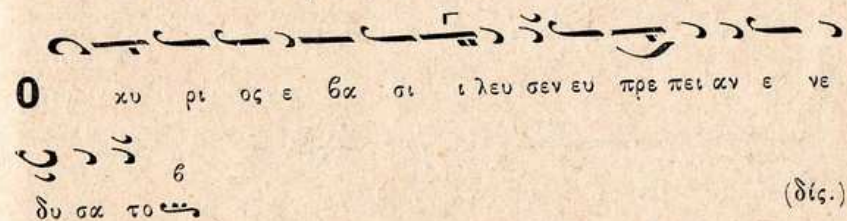 Ο κυ ρι ος ε βα σι ι λευ σεν ευ πρε πει αν ε νε
β
δυ σα το (δίς.)